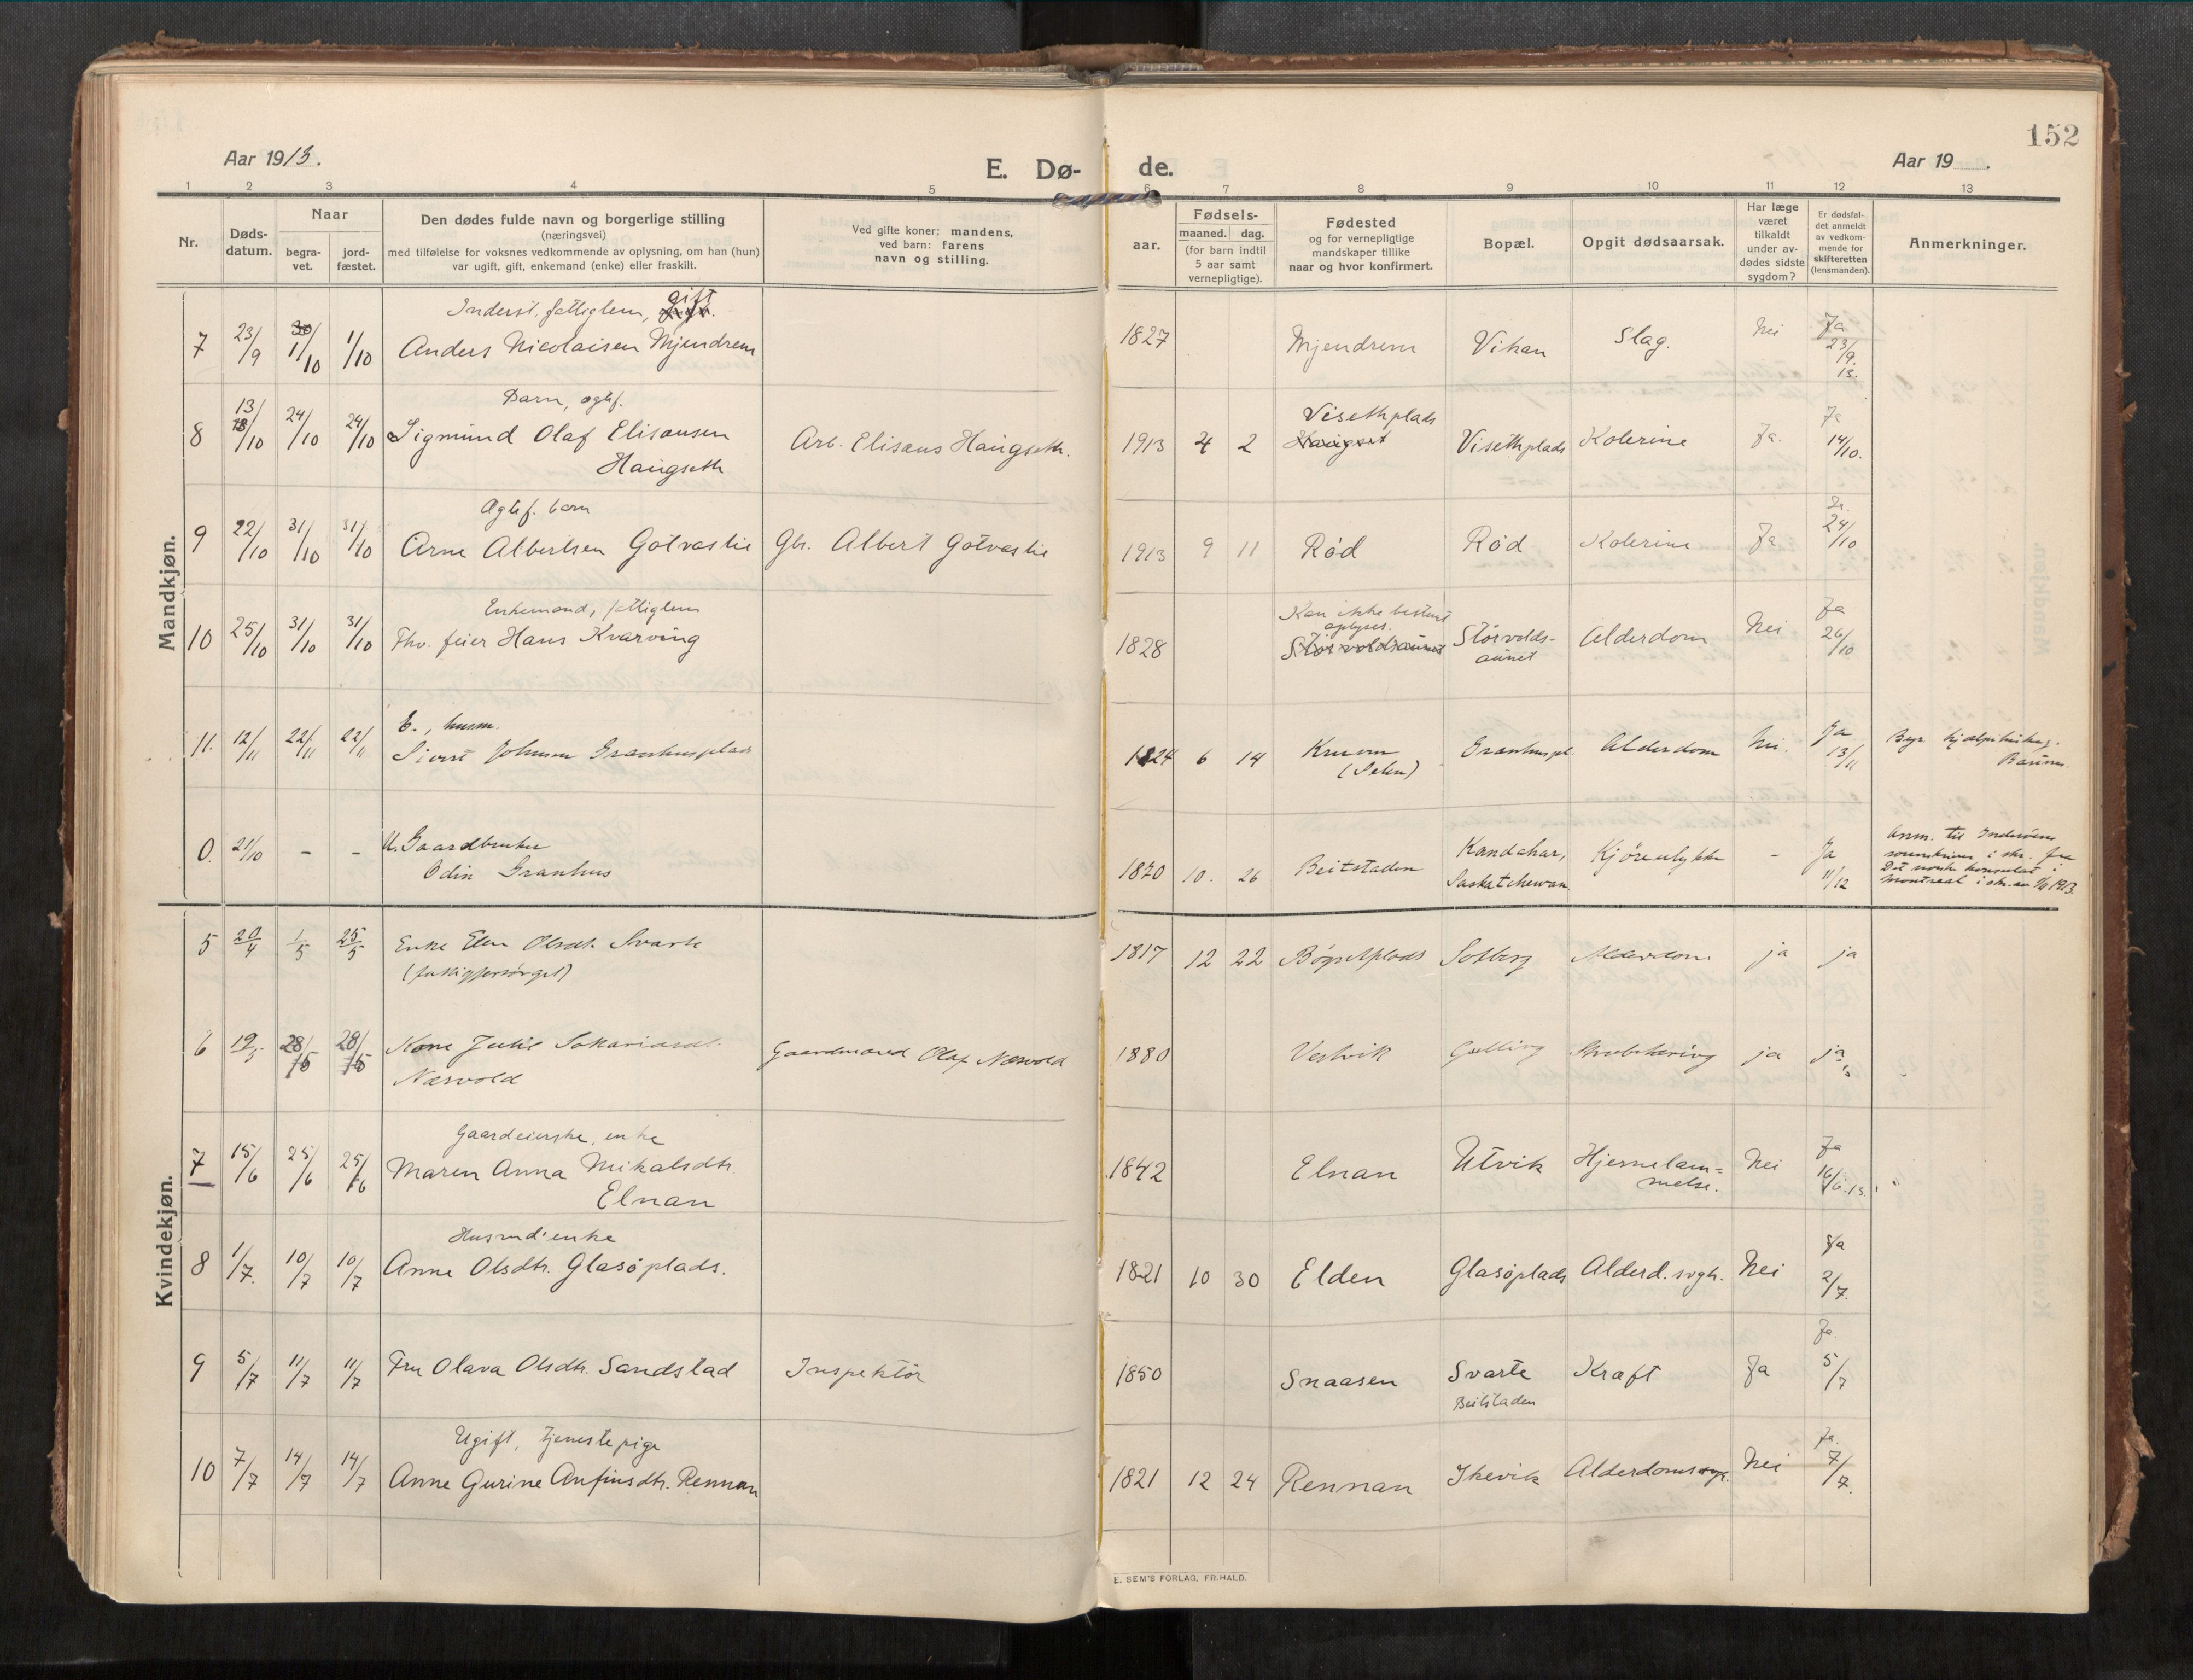 152
Aar 1913.
E. Dø- de.
Aar 19 .
1 2 3 4 5 6 7 8 9 10 11 12 13
Nr.
Døds-
datum.
Naar
begra-
vet.
jord-
fæstet.
Den dødes fulde navn og borgerlige stilling
(næringsvei)
med tilføielse for voksnes vedkommende av oplysning, om han (hun)
var ugift, gift, enkemand (enke) eller fraskilt.
Ved gifte koner: mandens,
ved barn: farens
navn og stilling.
Fødsels-
aar.
maaned. dag.
(for barn indtil
5 aar samt
vernepligtige).
Fødested
og for vernepligtige
mandskaper tillike
naar og hvor konfirmert.
Bopæl.
Opgit dødsaarsak.
Har læge
været
tilkaldt
under av-
dødes sidste
sygdom?
Er dødsfal-
det anmeldt
av vedkom-
mende for
skifteretten
(lensmanden).
Anmerkninger.
Mandkjøn.
Inderst, fattiglem, gift
7 23/9 1/10 1/10 Anders Nicolaisen Mjendrem 1827 Mjendrem Vikan Slag. Nei Ja 23/9. 13.
Barn, ogtef.
8 13/10 24/10 24/10 Sigmund Olaf Elisæusen
Haugseth
Arb. Elisæus Haugseth. 1913 4 2 Visethplads Visethplads Kolerine Ja. Ja 14/10.
Ægtef. barn
9 22/10 31/10 31/10 Arne Albertsen Gotvaslie Gbr. Albert Gotvaslie 1913 9 11 Rød Rød Kolerine Ja 24/10
Enkemand, fattiglem
10 25/10 31/10 31/10 Fhv. feier Hans Kvarving 1828 Kan ikke bestemt
oplyses.
Størvoldsaunet
Størvolds-
aunet
Alderdom Nei Ja 26/10
E., husm.
11. 12/11 22/11 22/11 Sivert Johnsen Granhusplads 1824 6 14 Kruem
(Selen)
Granhuspl. Alderdom Nei. Ja 13/11
0. 21/10 - - U. Gaardbruker
Odin Granhus
1870 10. 26 Beitstaden Kandahar,
Saskatchewan
Kjøreulykke - Ja 11/12
Anm. til Inderøens
sorenskriver i skr. fra
Det norske konsulat i
Montreal i skr. av 1913
Kvindekjøn.
5 20/4 1/5 25/5 Enke Elen Olsdt. Svarte
(fattigforsørget)
1817 12 22 Bøgsetplads Solberg Alderdom ja ja
6 19/5 28/5 28/5 Kone Julie Sakariasdt.
Næsvold
Gaardmand Olaf Næsvold 1880 Vestvik ja ja
Gaardeierske, enke
7 15/6 25/6 25/6 Maren Anna Mikalsdtr.
Elnan
1842 Elnan Utvik Hjernelam=
melse.
Nei Ja 16/6.13.
Husmd' enke
8 1/7. 10/7 10/7 Anne Olsdtr. Glasøplads. 1821 10 30 Elden Glasøplads Alderd.svgh. Nei Ja 2/7.
9 5/7 11/7 11/7 Fru Olava Olsdtr. Sandstad Inspektør 1850 Snaasen Svarte
Beitstaden
Kræft Ja Ja. 5/7
Ugift, tjenestepige
10 7/7 14/7 14/7 Anne Gurine Anfinsdtr. Rennan 1821 12 24 Rennan Ikevik Alderdomssvgh. Nei Ja. 7/7.
E. SEM'S FORLAG, FR.HALD.